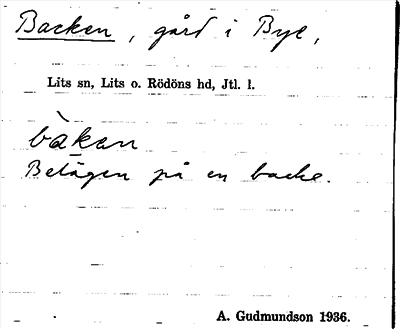 Backen, gård i Bye,
Lits sn, Lits o. Rödöns hd, Jtl. l.
bàkan
Belägen på en backe.
A. Gudmundson 1936.